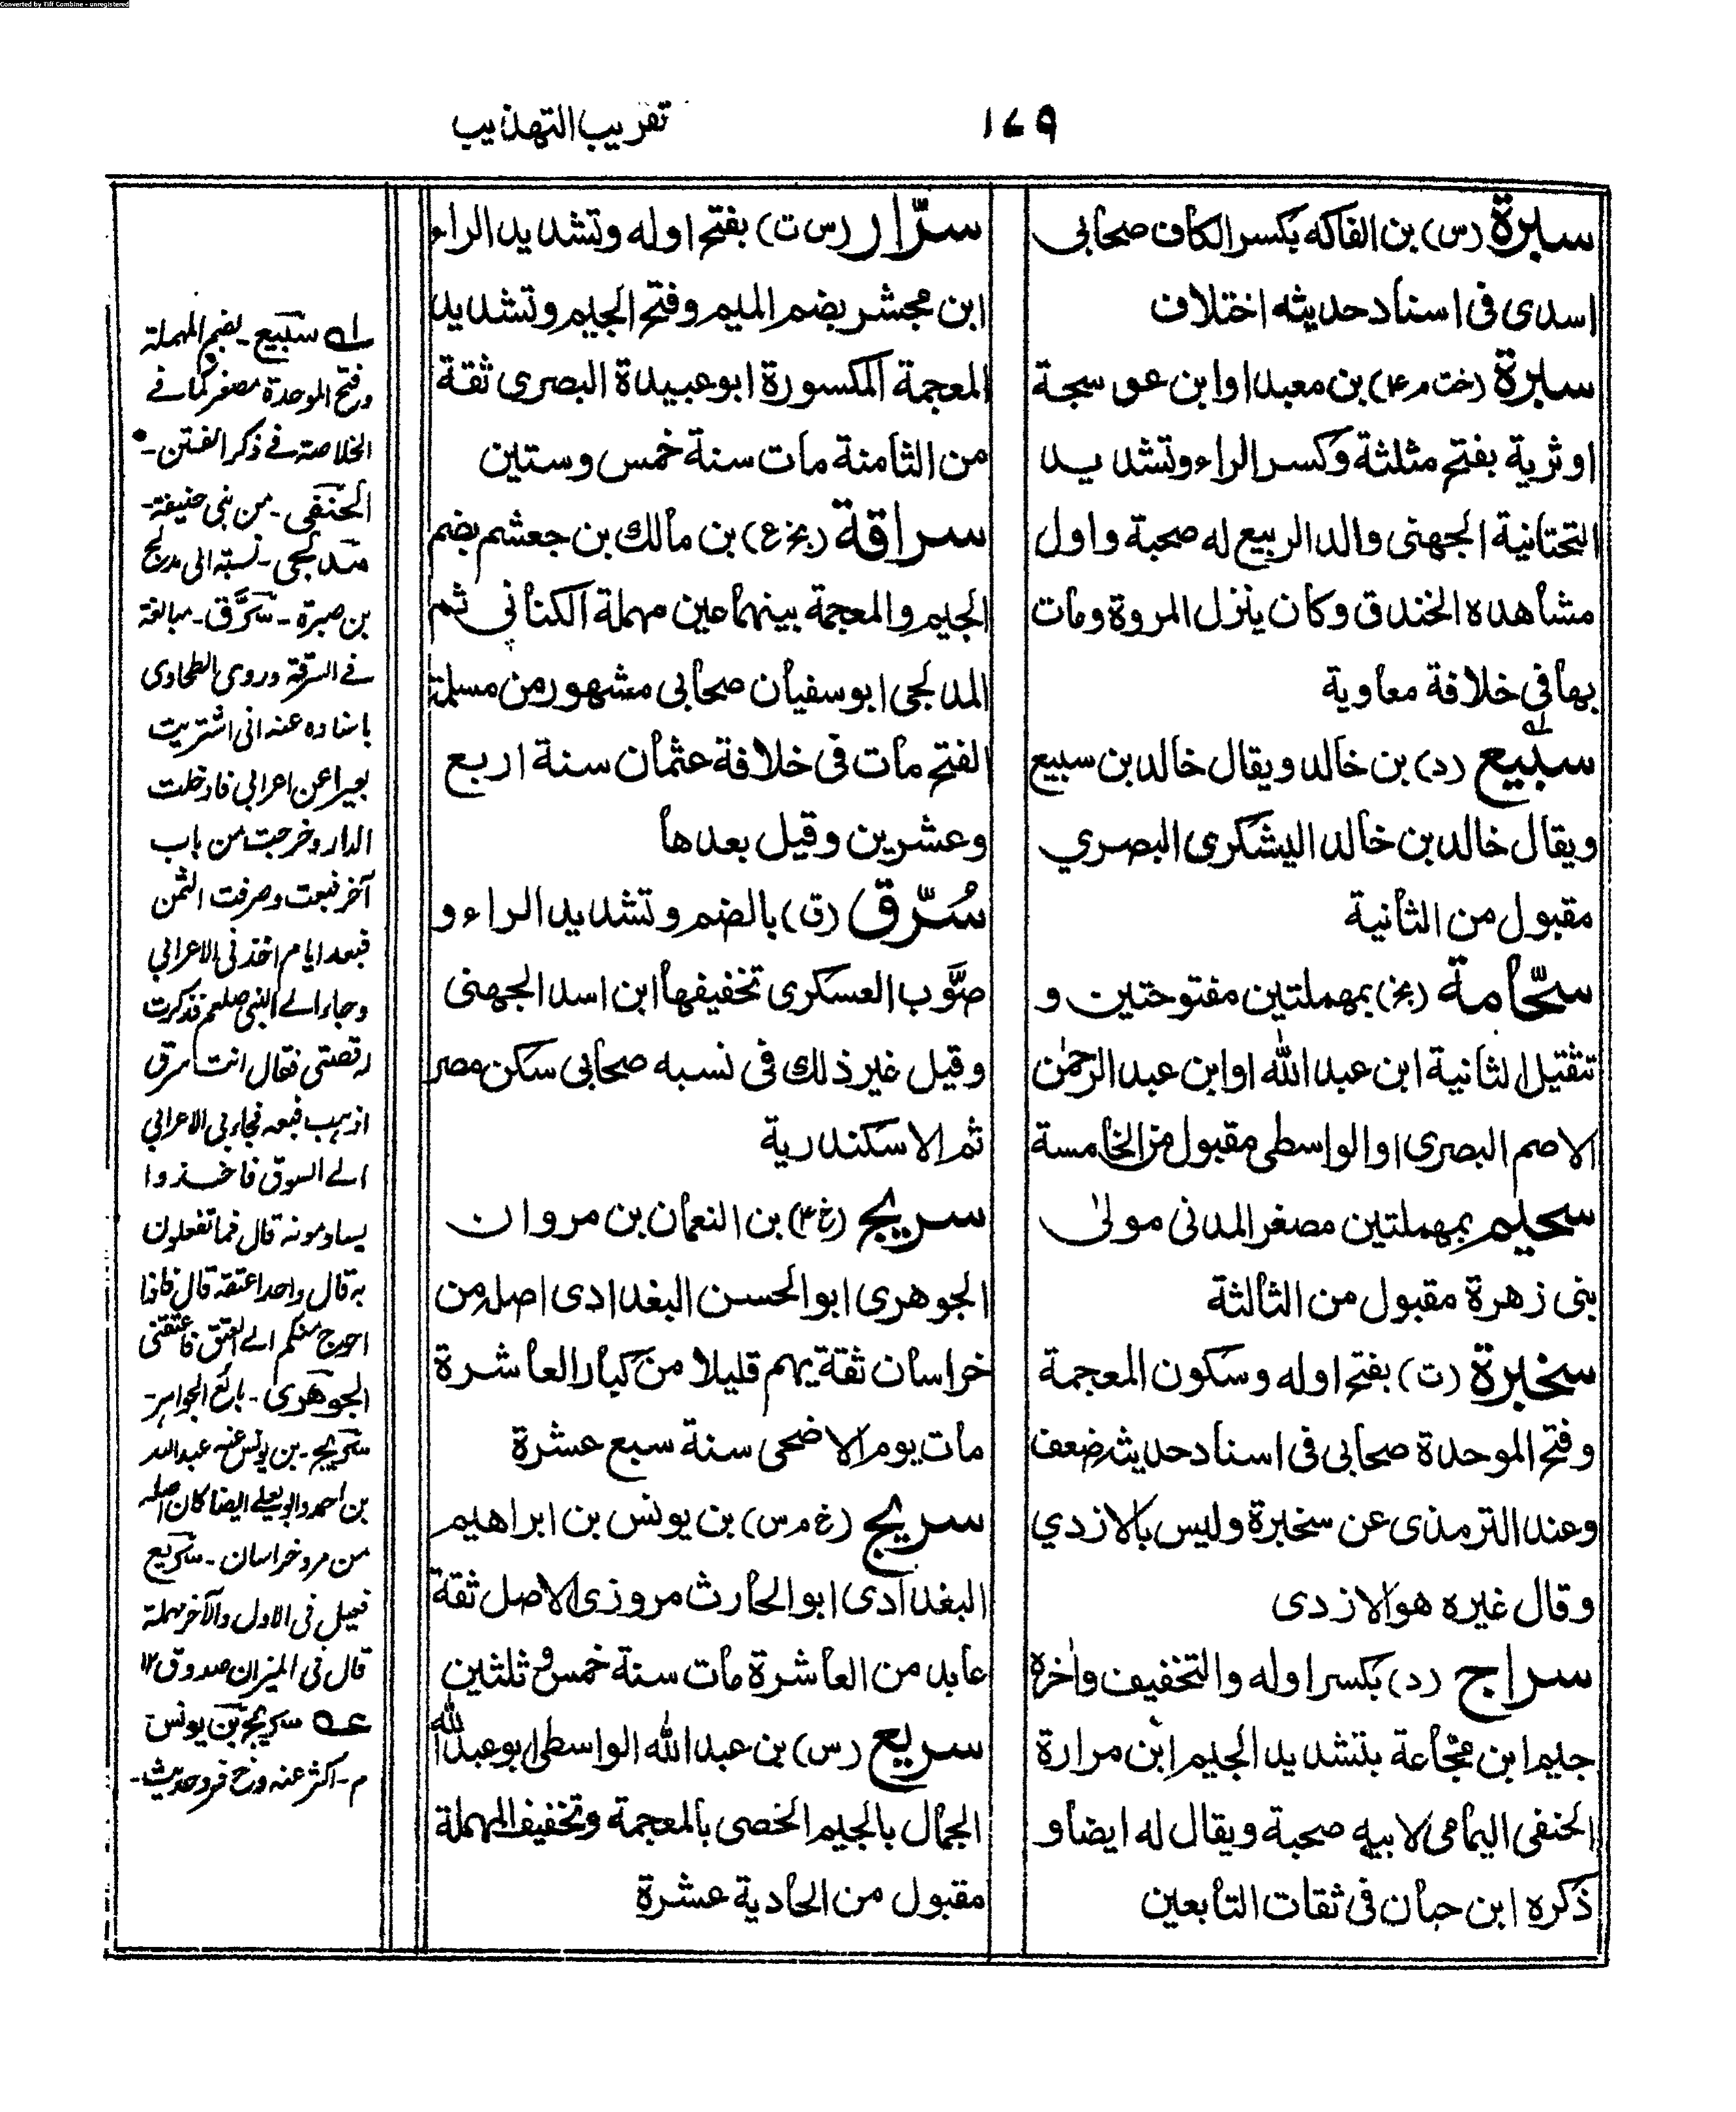 Converted by Tiff Combine - unregistered
١٧٩
تقريب التهذيب
سبرة (س) بن الفاكه بكسر الكاف صحابى
اسدى فى اسناد حديثه اختلاف
سبرة (خت م ۴) بن معبد او ابن عوسجة
او ثرية بفتح مثلثة وكسر الراء وتشديد
التحتانية الجهنى والد الربيع له صحبة واول
مشاهده الخندق وكان ينزل المروة ومات
بها فى خلافة معاوية
سبيع (د) بن خالد ويقال خالد بن سبيع
ويقال خالد بن خالد اليشكرى البصري
مقبول من الثانية
سحّامة (بخ) بمهملتين مفتوحتين و
تثقيل الثانية ابن عبد الله او ابن عبد الرحمٰن
الاصم البصرى او الواسطى مقبول من الخامسة
سحيم بمهملتين مصغر المدنى مولىٰ
بنى زهرة مقبول من الثالثة
سخبرة (ت) بفتح اوله وسكون المعجمة
وفتح الموحدة صحابى فى اسناد حديثه ضعف
وعند الترمذى عن سخبرة وليس بالازدي
وقال غيره هو الازدى
سراج (د) بكسر اوله والتخفيف وأخره
جيم ابن مجّاعة بتشديد الجيم ابن مرارة
الحنفى اليمامى لابيه صحبة ويقال له ايضا و
ذكره ابن حبان فى ثقات التابعين
سرّار (س ت) بفتح اوله وتشديد الراء
ابن مجشر بضم الميم وفتح الجيم وتشديد
المعجمة المكسورة ابو عبيدة البصرى ثقة
من الثامنة مات سنة خمس وستين
سراقة (بخ ع) بن مالك بن جعشم بضم
الجيم والمعجمة بينهما عين مهملة الكنانى ثم
المدلجى ابو سفيان صحابى مشهور من مسلمة
الفتح مات فى خلافة عثمان سنة اربع
وعشرين وقيل بعدها
سُرّق (ق) بالضم وتشديد الراء و
صوَّب العسكرى تخفيفها ابن اسد الجهنى
وقيل غير ذلك فى نسبه صحابى سكن مصر
ثم الاسكندرية
سريج (خ ۴) بن النعمان بن مروان
الجوهرى ابو الحسن البغدادى اصله من
خراسان ثقة يهم قليلا من كبار العاشرة
مات يوم الاضحى سنة سبع عشرة
سريج (خ م س) بن يونس بن ابراهيم
البغدادى ابو الحارث مروزى الاصل ثقة
عابد من العاشرة مات سنة خمس و ثلثين
سريع (س) بن عبد الله الواسطى ابو عبد الله
الجمال بالجيم الخصى بالمعجمة وتخفيف المهملة
مقبول من الحادية عشرة
له سبيع ۔ بضم المهملة
وفتح الموحدة مصغر كما فى
الخلاصة فى ذكر الفتن ۔
الحنفى ۔ من بنى حنيفة ۔
مدلجى ۔ نسبة الى مدلج
بن ضبرة ۔ سرّق ۔ مبالغة
فى السرقة وروى الطحاوى
باسناده عنه انى اشتريت
بعيرا من اعرابى فادخلت
الدار وخرجت من باب
آخر فبعت وصرفت الثمن
فبعد ايام اخذنى الاعرابى
وجاء الى النبى صلعم فذكرت
له قصتى فقال انت سرق
اذهب فبعه فجاء بى الاعرابى
الى السوق فاخذوا
يساومونه قال فما تفعلون
به قال واحد اعتقه قال فانا
احوج منكم الى العتق فاعتقنى
الجوهرى ۔ بائع الجواهر
سريج ۔ بن يونس عنه عبد الله
بن احمد وابو يعلى ايضا كان اصله
من مرو خراسان ۔ سريع
فعيل فى الاول والآخر مهملة
قال فى الميزان صدوق ١٢
عه سريج بن يونس
م ۔ اكثر عنه و خ فرد حديث ۔